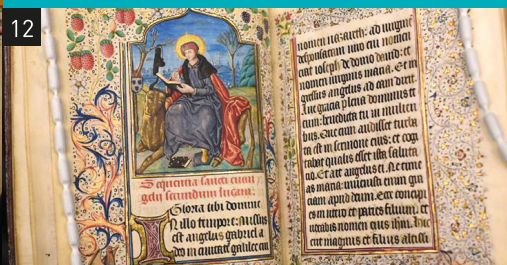 12
Sequentia sancti euan
gelii secundum lucam:
Gloria tibi domine
In illo tempore: Missus
est angelus gabriel a
deo in ciuitatem galilee cui
nomen nazareth: ad uirginē
desponsatam uiro cui nomen
erat ioseph de domo dauid: et
nomen uirginis maria. Et in
gressus angelus ad eam dixit.
Aue gracia plena dominus te
cum: benedicta tu in mulieri
bus. Que cum audisset turba
ta est in sermone eius: et cogi
tabat qualis esset ista saluta
cio. Et ait angelus ei. Ne timeas
maria: inuenisti enim gra
ciam apud deum. Ecce concipi
es in utero et paries filium. et
uocabis nomen eius ihm. Hic
erit magnus et filius altissi